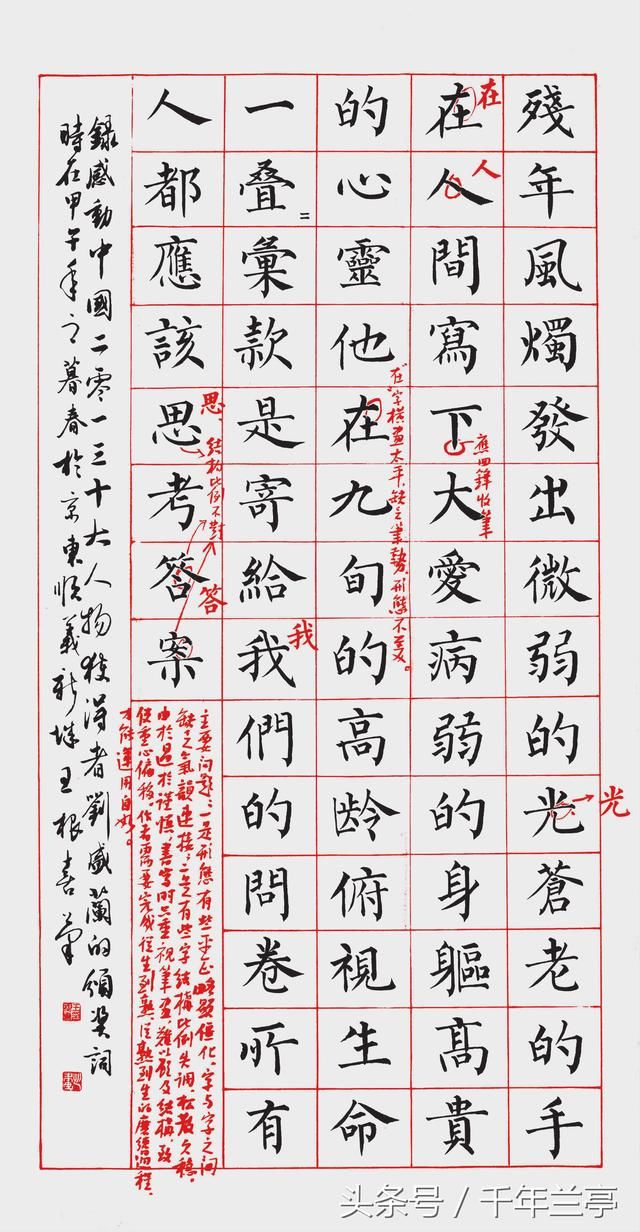 殘年風燭發出微弱的光蒼老的手
在人間寫下大愛病弱的身軀高貴
的心靈他在九旬的高龄俯視生命
一叠彙款是寄給我們的問卷所有
人都應該思考答案
錄感動中國二零一三十大人物獲得者劉盛蘭的頒獎詞
時在甲午年之暮春於京東順義新城王根喜筆
在
人
應回鋒收筆
光
在字橫畫太平缺乏筆勢,形態不美。
我
思
結構比例不對
答
主要問題:一是形態有些平正略顯僵化,字与字之间
缺乏氣韻連接;二是有些字結構比例失調,松散欠穩,
由於過於謹慎,書寫時只重視筆畫,難以顧及結構,致
使重心偏移。作者需要完成從生到熟,從熟到生的磨練過程,
才能運用自如。
头条号 / 千年兰亭